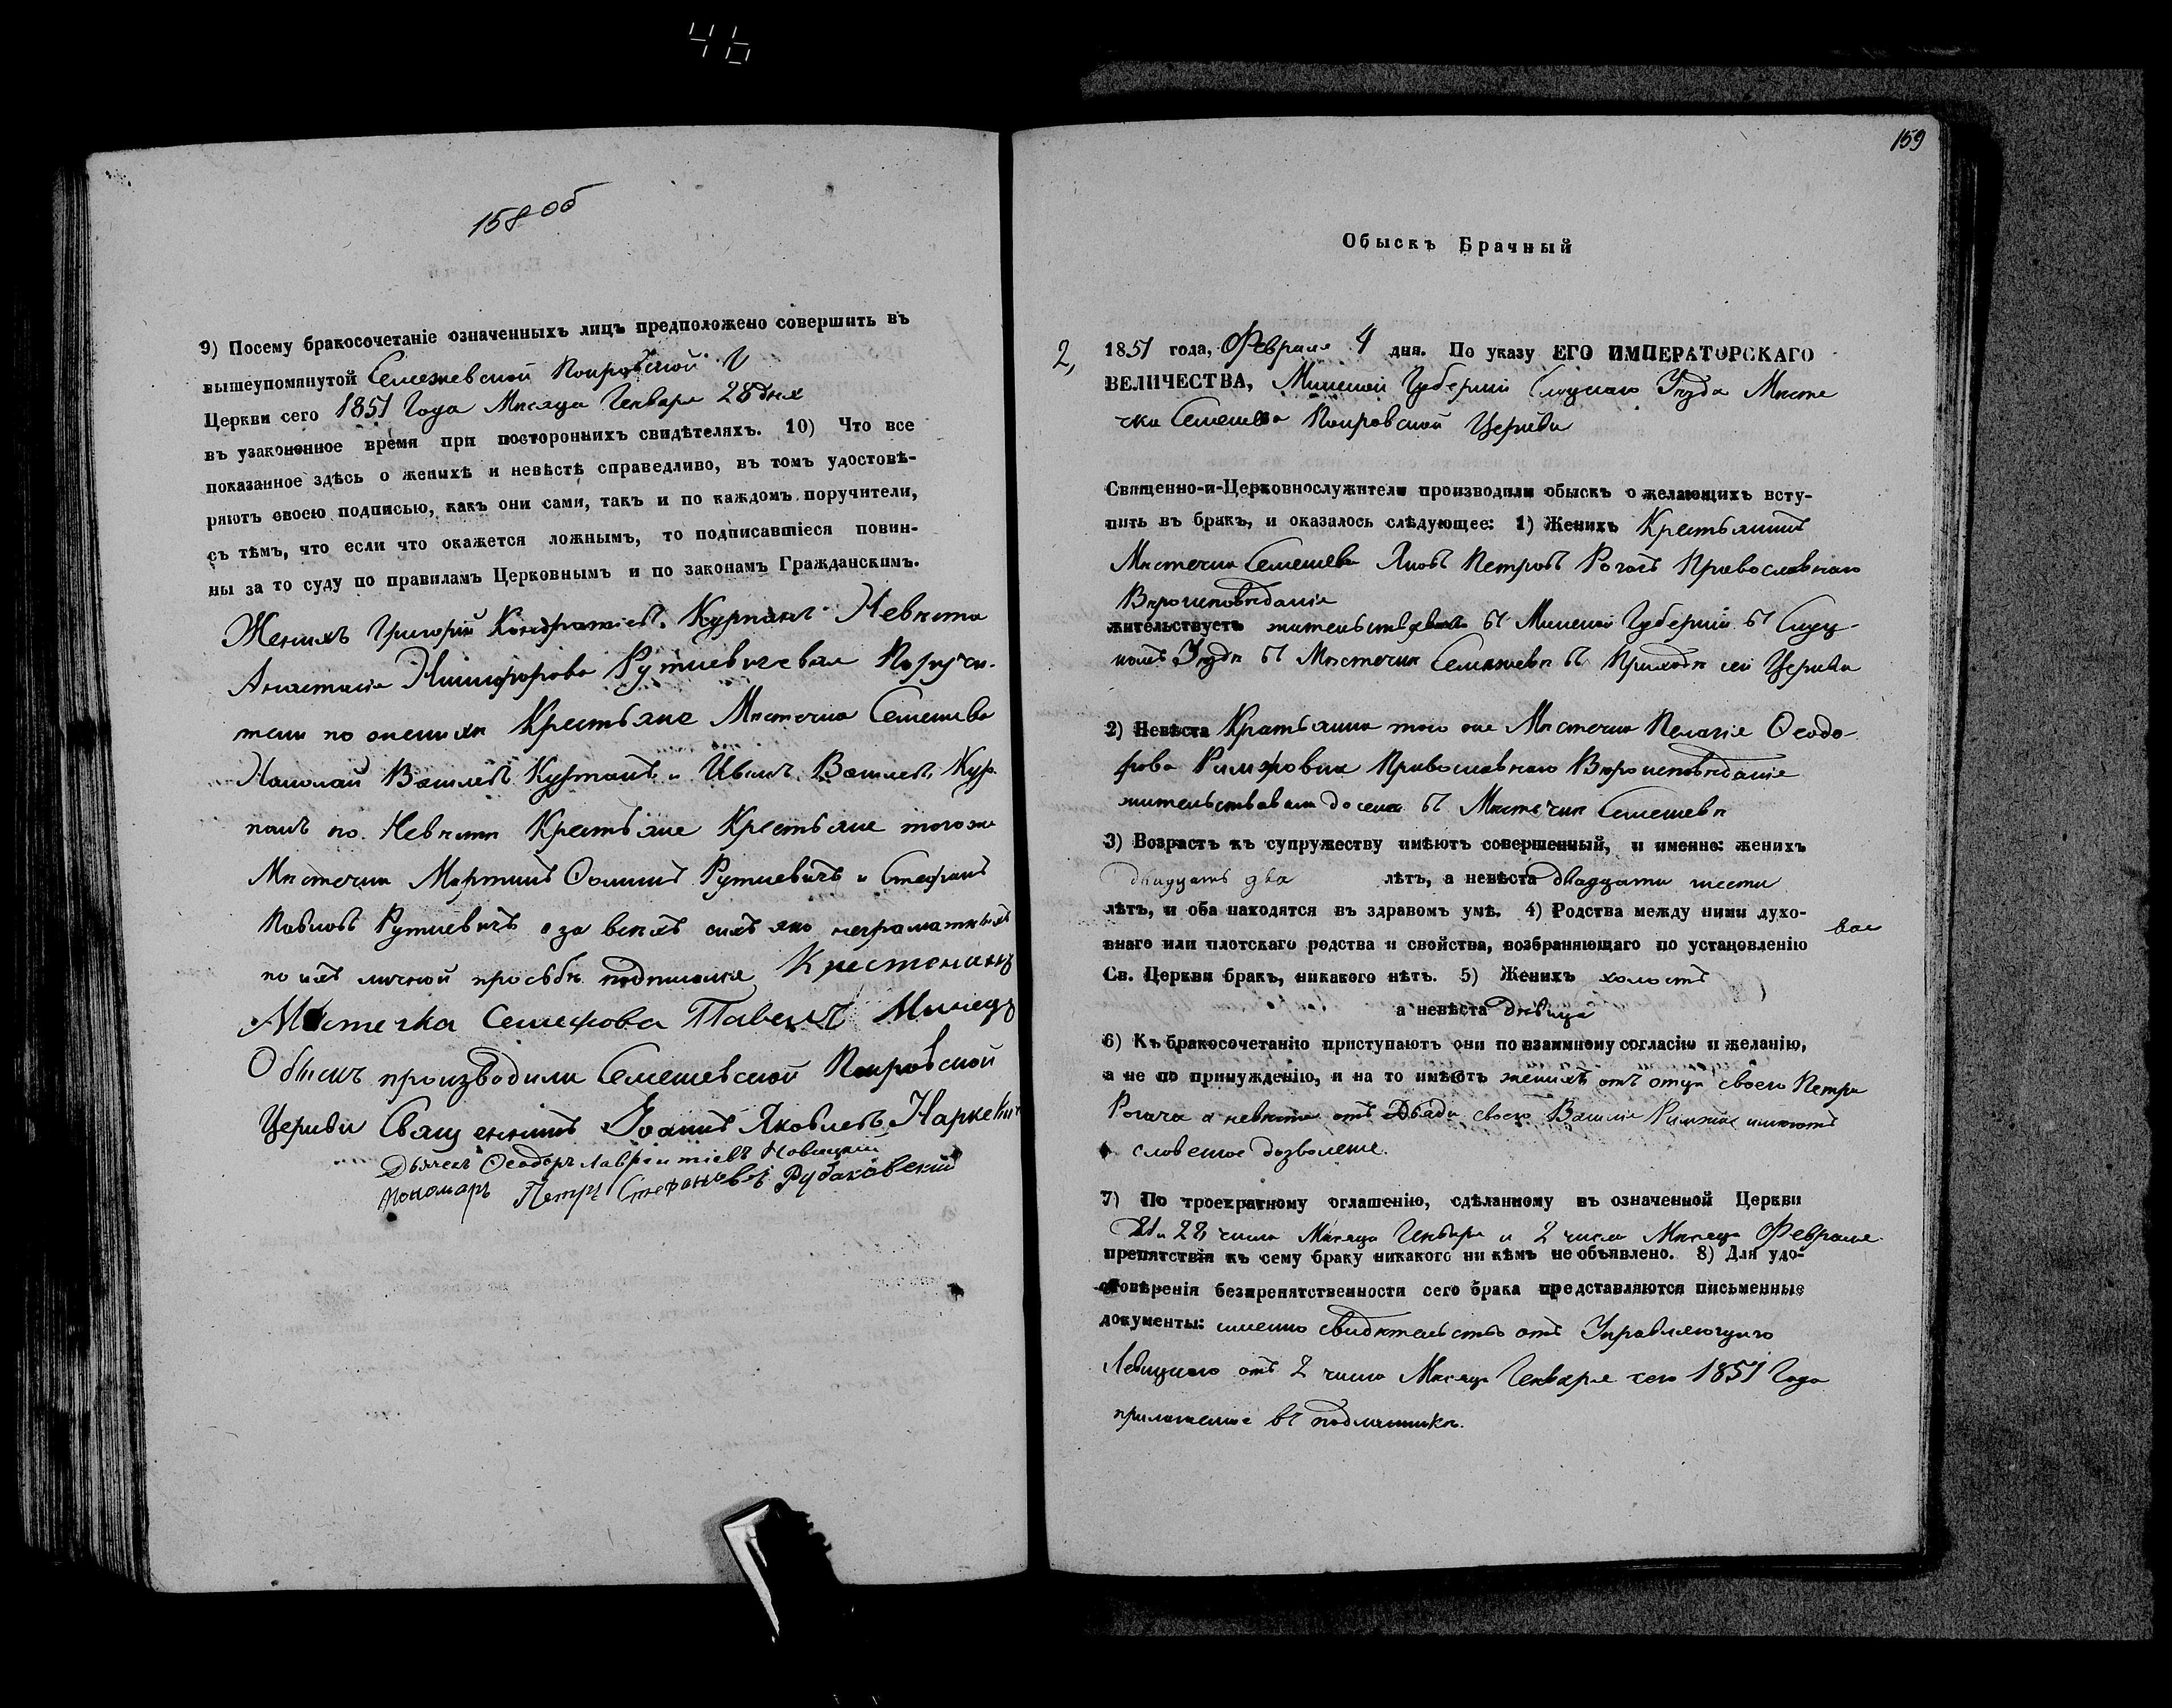 46
158 об
9) Посему бракосочетаніе означенныхъ лицъ предположено совершить въ
вышеупомянутой Семежевской Покровской
Церкви сего 1851 Года Мѣсяца Генваря 28 дня
въ узаконенное время при постороннихъ свидѣтеляхъ. 10) Что все
показанное здѣсь о женыхѣ и невѣстѣ справедливо, въ томъ удостовѣ-
ряютъ своею подписью, какъ они сами, такъ и по каждомъ поручители,
съ тѣмъ, что если что окажется ложнымъ, то подписавшіеся повин-
ны за то суду по правиламъ Церковнымъ и по законамъ Гражданскимъ.
Женихъ Григорій Кондратіевъ Курпанъ Невѣста
Анастасія Никифорова Руткевичевая Поручи-
тели по женихѣ Крестьяне Мѣстечка Семежева
Николай Васильевъ Курпанъ и Иванъ Васильевъ Кур-
панъ по Невѣстѣ Крестьяне Крестьяне тогоже
Мѣстечка Мартинъ Ѳоминъ Руткевичъ и Стефанъ
Павловъ Руткевичъ а за всѣхъ сихъ яко неграматныхъ
по ихъ личной просьбѣ подписался Крестеанинъ
Местечка Семежова Павелъ
Обыскъ производили Семежевской Покровской
Церкви Священникъ Іоаннъ Яковлевъ Наркевичъ
Дьячекъ Ѳеодоръ Лаврентіевъ Новицкій
Пономаръ Петръ Стефановъ Рубаковский
159
Обыскъ Брачный
2, 1851 года, Февраля 4 дня. По указу ЕГО ИМПЕРАТОРСКАГО
ВЕЛИЧЕСТВА, Минской Губерніи Слуцкаго Уѣзда Мѣсте
чка Семежева Покровской Церкви
Священно-и-Церковнослужители производили обыскъ о желающихъ всту-
пить въ бракъ, и оказалось слѣдующее: 1) Женихъ Крестьянинъ
Мѣстечка Семежева Яковъ Петровъ Рогачъ Православнаго
Вѣроисповѣданія
жительствуетъ жительствовалъ въ Минской Губерніи въ Слуц-
комъ Уѣздѣ въ Мѣстечкѣ Семежевѣ въ Приходѣ сей Церкви
2) Невѣста Крестьянка того же Мѣстечка Пелагія Ѳеодо-
рова Православнаго Вѣроисповѣданія
жительствовала доселѣ въ Мѣстечкѣ Семежевѣ
3) Возрастъ къ супружеству имѣютъ совершенный, и именно: женихъ
двадцать два лѣтъ, а невѣста двадцати шести
лѣтъ, и оба находятся въ здравомъ умѣ. 4) Родства между ними духо-
внаго или плотскаго родства и свойства, возбраняющаго по установленію
Св. Церкви бракъ, никакого нѣтъ. 5) Женихъ холостъ
а невѣста дѣвица
6) Къ бракосочетанію приступаютъ они по взаимному согласію и желанію,
а не по принужденію, и на то имѣютъ женихъ отъ отца своего Петра
Рогача а невѣста отъ дяди своего Василія имѣютъ
словесное дозволеніе.
7) По троекратному оглашенію, сдѣланному въ означенной Церкви
21 и 28 числа Мѣсяца Генваря и 2 числа Мѣсяца Февраля
препятствія къ сему браку никакого ни кѣмъ не объявлено. 8) Для удо-
стовѣренія безпрепятственности сего брака представляются письменные
документы: именно свидѣтельство отъ Управляющаго
Левицкаго отъ 2 числа Мѣсяца Генваря сего 1851 Года
приложенное въ подлинникѣ.